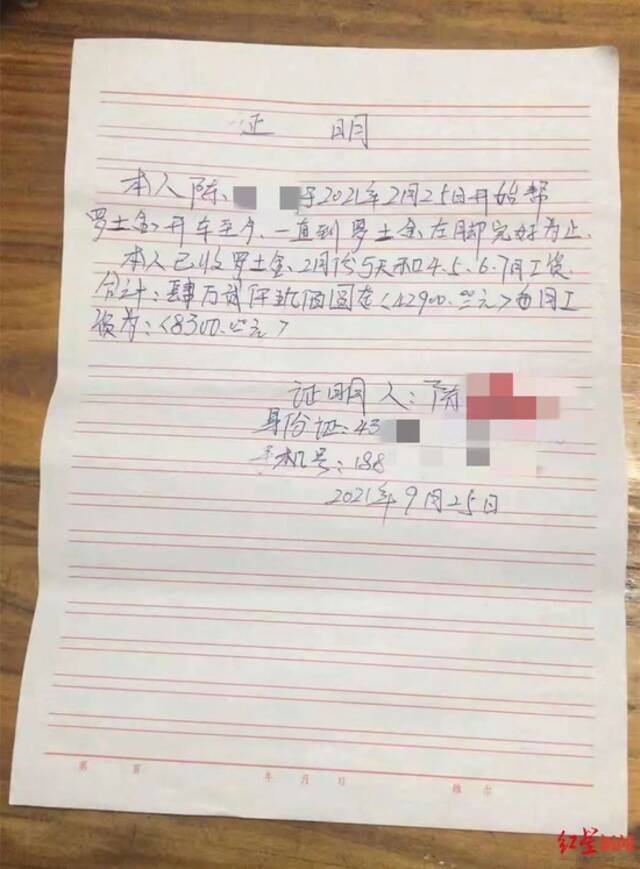 证 明
本人陈、于2021年2月25日开始帮
罗土金开车至今、一直到罗土金左脚完好为止.
本人已收罗土金、2月份5天和4.5.6.7月工资
合计:肆万贰仟玖佰圆在<42900.00元>每月工
资为:<8300.00元>
证明人:陈
身份证:43
手机号:188
2021年9月25日
第 页 年 月 日
红星新闻